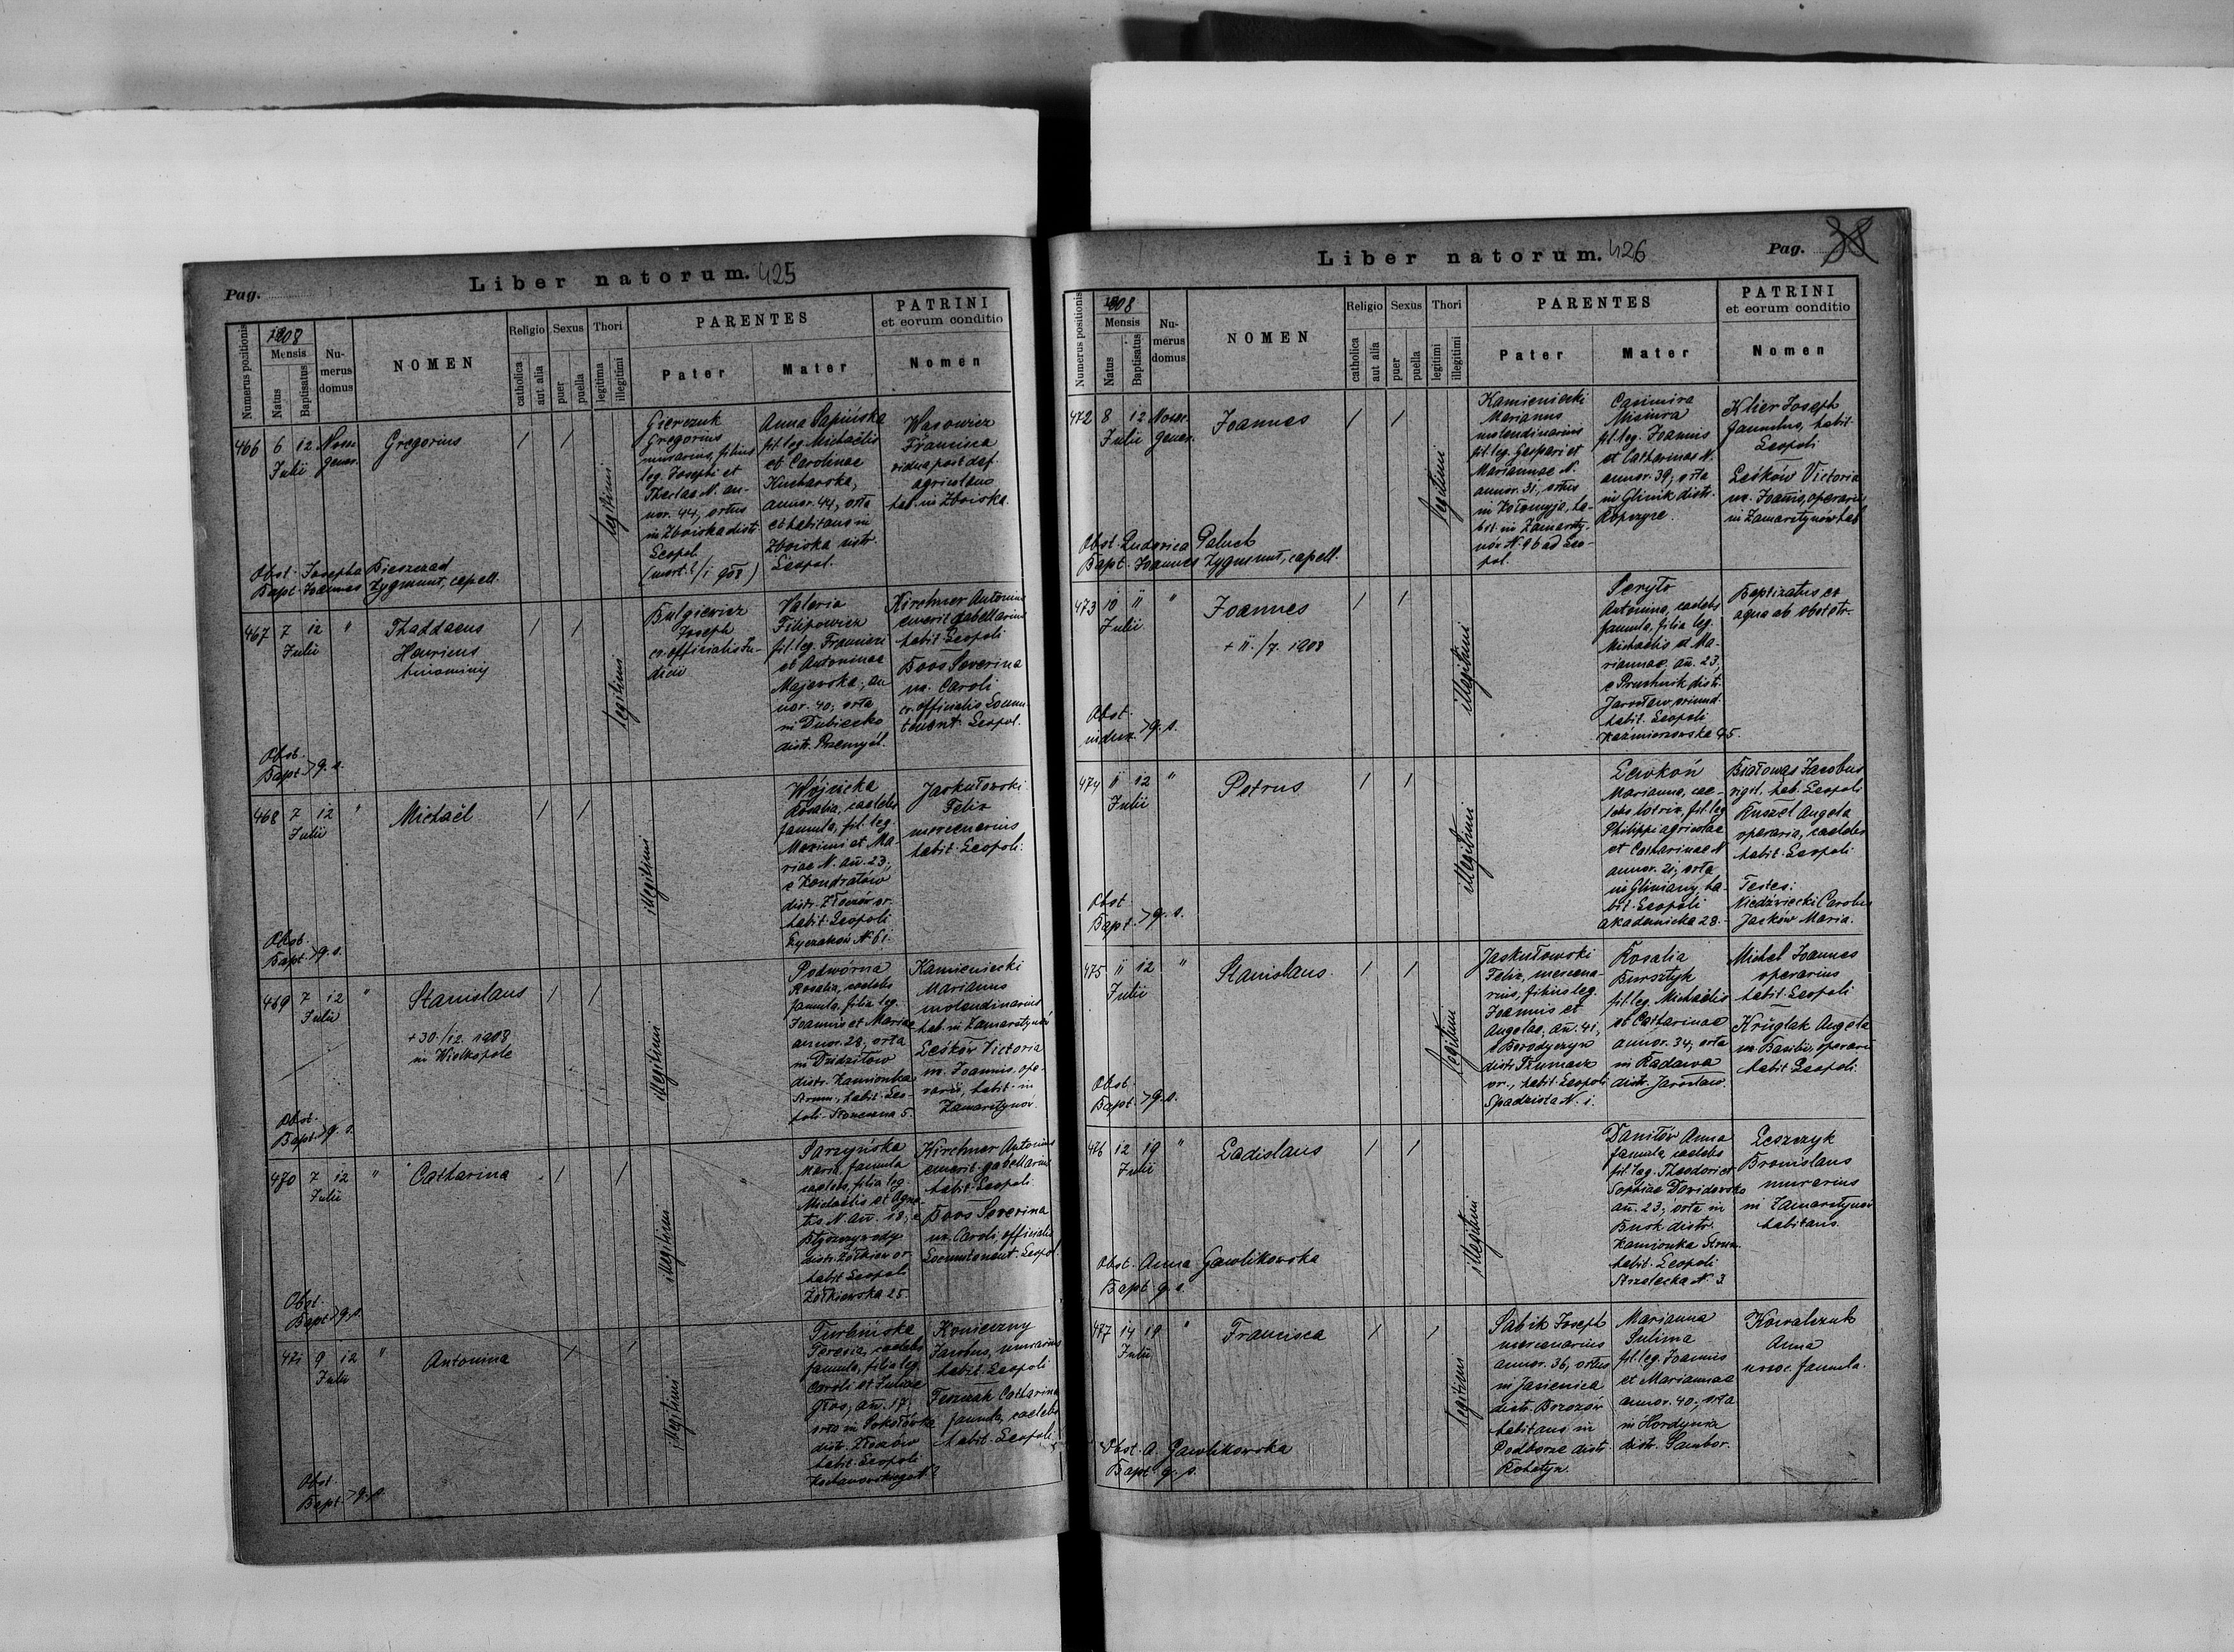 Pag.
Liber natorum. 425
Numerus positionis
1908
Mensis
Natus
Baptisatus
Nu-
merus
domus
NOMEN
Religio
catholica
aut alia
Sexus
puer
puella
Thori
legitima
illegitimi
PARENTES
Pater
Mater
PATRINI
et eorum conditio
Nomen
466 6 12
Julii
Gregorius
legitimi
Gierczuk
Gregorius
murarius, filius
leg. Josephi et
Theclae N. an-
nor. 44, ortus
in Zboiska distr.
Leopol.
Anna Sapińska
fil. leg. Michaëlis
et Carolinae
Kucharska,
annor. 44, orta
et habitans in
Zboiska distr.
Leopol.
Wasowicz
Francisca
vidua post def.
agricolam
hab. in Zboiska.
Obst. Josepha Bieszczad
Bapt. Joannes Zygmunt, capell.
467 7 12 "
Julii
Thaddaeus
Henricus
binominis
legitimi
Bulgiewicz
Joseph
cr. officialis Ju-
dicii
Valeria
Filipowicz
fil. leg. Francisci
et Antoninae
Majewska, an
nor. 40, orta
in Dubiecko
distr. Przemyśl.
Kirchner Antonius
emerit. gabellarius
habit. Leopoli
Boos Severina
ux. Caroli
cr. officialis Locum
tenent. Leopol.
Obst.
Bapt. > q. s.
468 7 12 "
Julii
Michaël
illegitimi
Wójcicka
Rosalia, caelebs
famula, fil. leg.
Maximi et Ma-
riae N. an. 23,
e Kondratów
distr. Złoczów or.
habit. Leopoli
Łyczaków N. 61.
Jaskułowski
Felix
mercenarius
habit. Leopoli.
Obst.
Bapt. > q. s.
469 7 12 "
Julii
Stanislaus
+ 30/12 1908
in Wielkopole
illegitimi
Podwórna
Rosalia, caelebs
famula, filia leg.
Joannis et Mariae
annor. 28, orta
in Dziedziłow
distr. Kamionka
Strum., habit. Leo-
poli
Kamieniecki
Marianus
molendinarius
hab. in Zamarstynów
Leśków Victoria
ux. Joannis, ope-
rarii, habit. in
Zamarstynów.
Obst.
Bapt. > q. s.
470 7 12 "
Julii
Catharina
illegitimi
Parzyńska
Maria, famula
caelebs, filia leg.
Michaëlis et Agne-
tis N. an. 18, e
distr. Żółkiew or.
habit. Leopoli
Żółkiewska 25.
Kirchner Antonius
emerit. gabellarius
habit. Leopoli
Boos Severina
ux. Caroli, officialis
Locumtenent. Leopol.
Obst.
Bapt. > q. s.
471 9 12 "
Julii
Antonina
illegitimi
Teresia, caelebs
famula, filia leg.
Caroli et Juliae
Głos, an. 17,
orta in Sokołówka
distr. Złoczów
habit. Leopoli
Konieczny
Jacobus, murarius
habit. Leopoli
Catharina
famula, caelebs
habit. Leopoli.
Obst.
Bapt. > q. s.
Liber natorum. 426
Pag. 38
Numerus positionis
1908
Mensis
Natus
Baptisatus
Nu-
merus
domus
NOMEN
Religio
catholica
aut alia
Sexus
puer
puella
Thori
legitimi
illegitimi
PARENTES
Pater
Mater
PATRINI
et eorum conditio
Nomen
472 8 12
Julii
Joannes
legitimi
Kamieniecki
Marianus
molendinarius
fil. leg. Gaspari et
Mariannae N.
annor. 31, ortus
in Kołomyja, ha-
bit. in Zamarsty-
nów N. 96 ad Leo-
pol.
Casimira
Misiura
fil. leg. Joannis
et Catharinae N.
annor. 39, orta
in Glinik distr.
Ropczyce.
Klier Joseph
famulus, habit.
Leopoli
Leśków Victoria
ux. Joannis, operarii
in Zamarstynów hab.
Obst. Ludovica Paluch
Bapt. Joannes Zygmunt, capell.
473 10 11 "
Julii
Joannes
+ 11/7 1908
illegitimi
Antonina, caelebs
famula, filia leg.
Michaëlis et Ma-
riannae, an. 23,
e Pruchnik distr.
Jarosław oriund.
habit. Leopoli
Kazimierzowska 45.
Baptizatus ex
aqua ab obstetr.
Obst.
> q. s.
474 11 12 "
Julii
Petrus
illegitimi
Marianna, cae-
lebs lotrix, fil. leg.
Philippi agricolae
et Catharinae N
annor. 21, orta
in Gliniany, ha-
bit. Leopoli
Akademicka 28.
Białowąs Jacobus
vigil. hab. Leopoli
Kuszel Angela
operaria, caelebs
habit. Leopoli
Testes:
Niedźwiecki Carolus
Jacków Maria.
Obst.
Bapt. > q. s.
475 11 12 "
Julii
Stanislaus
legitimi
Jaskułowski
Felix, mercena-
rius, filius leg.
Joannis et
Angelae, an. 41,
distr. Tłumacz
or., habit. Leopoli
Spadzista N. 1.
Rosalia
Bursztyk
fil. leg. Michaëlis
et Catharinae
annor. 34, orta
in Radawa
distr. Jarosław.
Michel Joannes
operarius
habit. Leopoli
Kruglak Angela
ux. Basilii, operarii
habit. Leopoli.
Obst.
Bapt. > q. s.
476 12 19 "
Julii
Ladislaus
illegitimi
Daniłów Anna
famula caelebs
fil. leg. Theodori et
Sophiae Davidowska
an. 23, orta in
Busk distr.
Kamionka Strum.
habit. Leopoli
Strzelecka N. 3
Leszczyk
Bronislaus
murarius
in Zamarstynów
habitans.
Obst. Anna Gawlikowska
Bapt. q. s.
477 14 19 "
Julii
Francisca
legitimi
Sabik Joseph
mercenarius
annor. 36, ortus
in Jasienica
distr. Brzozów
habitans in
Podborze distr.
Rohatyn.
Marianna
Sulima
fil. leg. Joannis
et Mariannae
annor. 40, orta
in Hordynia
distr. Sambor.
Kowalczuk
Anna
uxor. famula.
Obst. A. Gawlikowska
Bapt. q. s.